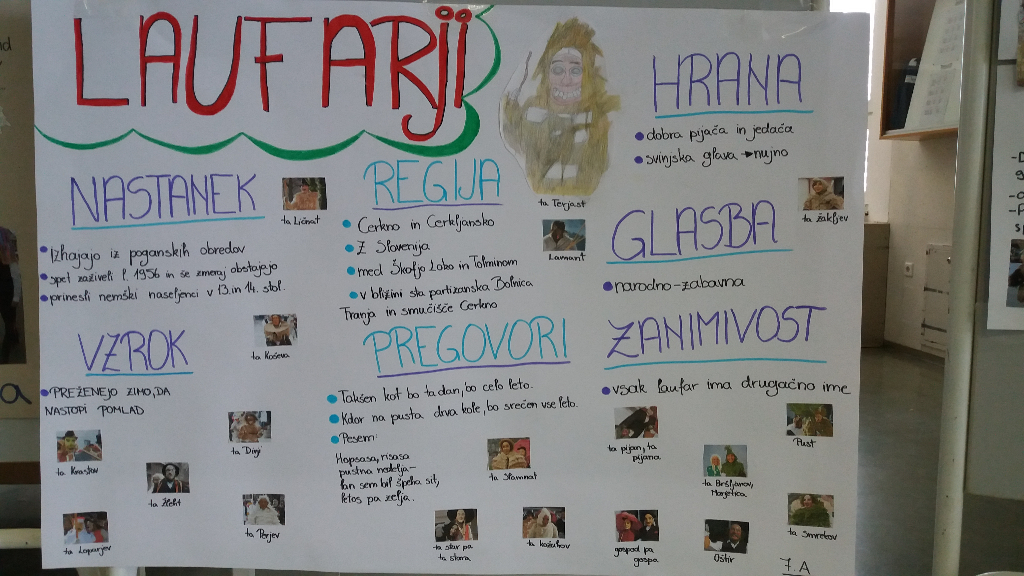 LAUFARJI
NASTANEK
Izhajajo iz poganskih obredov
spet zaživeli l. 1956 in še zmeraj obstajajo
prinesli nemški naseljenci v 13. in 14. stol.
ta Ličnat
VZROK
PREŽENEJO ZIMO, DA
NASTOPI POMLAD
ta Koševa
ta Krastov
ta Divji
ta Žleht
ta Loparjev
ta Perjev
REGIJA
Cerkno in Cerkljansko
Z Slovenija
med Škofjo Loko in Tolminom
v bližini sta partizanska Bolnica
Franja in smučišče Cerkno
ta Terjast
Lamant
PREGOVORI
Takšen kot bo ta dan, bo celo leto.
Kdor na pusta drva kole, bo srečen vse leto.
Pesem:
Hopsasa, risasa
pustna nedelja-
lan sem bil špeha sit,
letos pa zelja.
ta Slamnat
ta star pa
ta stara
ta kožuhov
HRANA
dobra pijača in jedača
svinjska glava → nujno
ta žakljev
GLASBA
narodno-zabavna
ZANIMIVOST
vsak laufar ima drugačno ime
ta pijan, ta
pijana
Pust
ta Bršljanov,
Marjetica
gospod pa
gospa
Oštir
ta Smrekov
7. A